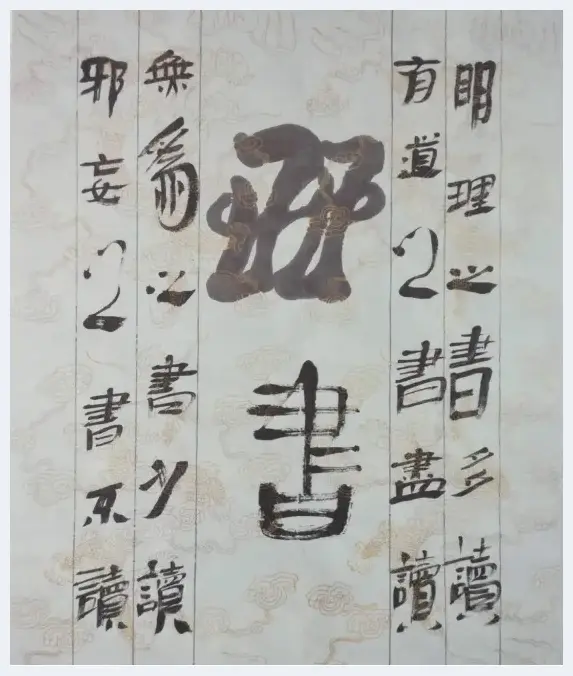 明理之書多讀
有道之書盡讀
書
無為之書少讀
邪妄之書不讀